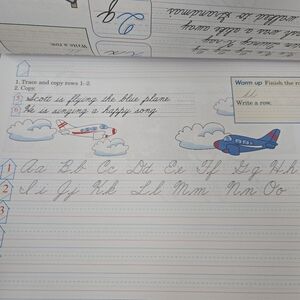 Write a row.
walked to Grandmas
1. Trace and copy rows 1-2.
2. Copy.
Scott is flying the blue plane
He is singing a happy song
Warm up Finish the
Write a row.
1 Aa Bb Cc Dd Ee Ff Gg Hh
2 Ii Jj Kk Ll Mm Nn Oo
3